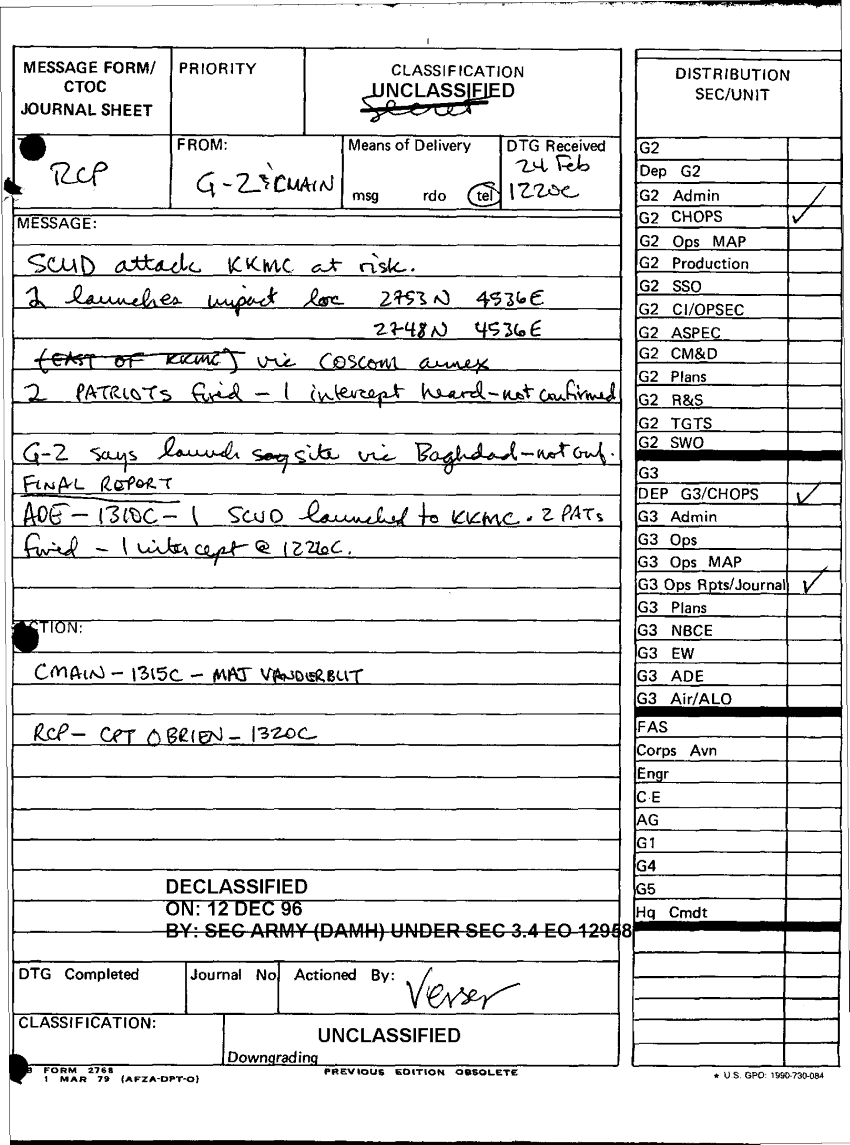 MESSAGE FORM/
CTOC
JOURNAL SHEET
PRIORITY
CLASSIFICATION
UNCLASSIFIED
Secret
DISTRIBUTION
SEC/UNIT
RCP
FROM:
G-2 & CMAIN
Means of Delivery
msg rdo tel
DTG Received
24 Feb
1220C
MESSAGE:
SCUD attack KKMC at risk.
2 launches impact loc 2753N 4536E
2748N 4536E
(EAST OF KKMC) vic COSCOM annex
2 PATRIOTs fired - 1 intercept heard - not confirmed
G-2 says launch site vic Baghdad - not conf.
FINAL REPORT
ADE - 1310C - 1 SCUD launched to KKMC. 2 PATs
fired - 1 intercept @ 1226C.
ACTION:
CMAIN - 1315C - MAJ VANDERBLIT
RCP - CPT O BRIEN - 1320C
DECLASSIFIED
ON: 12 DEC 96
BY: SEC ARMY (DAMH) UNDER SEC 3.4 EO 12958
DTG Completed
Journal No
Actioned By:
Verser
CLASSIFICATION:
UNCLASSIFIED
Downgrading
FORM 2768
1 MAR 79 (AFZA-DPT-O)
PREVIOUS EDITION OBSOLETE
G2
Dep G2
G2 Admin
G2 CHOPS
G2 Ops MAP
G2 Production
G2 SSO
G2 CI/OPSEC
G2 ASPEC
G2 CM&D
G2 Plans
G2 R&S
G2 TGTS
G2 SWO
G3
DEP G3/CHOPS
G3 Admin
G3 Ops
G3 Ops MAP
G3 Ops Rpts/Journal
G3 Plans
G3 NBCE
G3 EW
G3 ADE
G3 Air/ALO
FAS
Corps Avn
Engr
C-E
AG
G1
G4
G5
Hq Cmdt
★ U.S. GPO: 1990-730-084